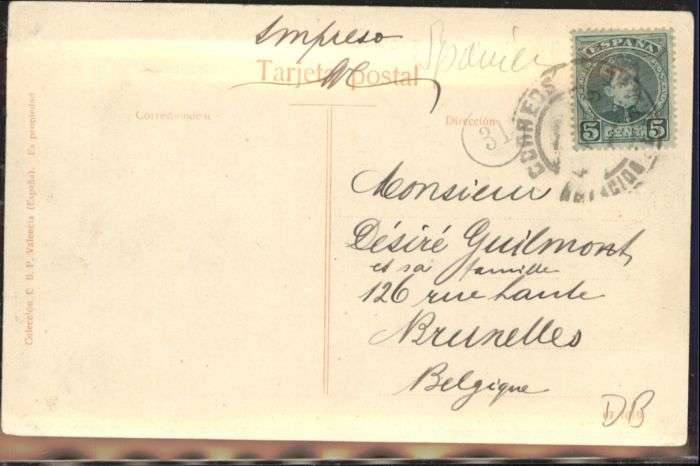 Impreso
Spanien
Tarjeta postal
Correspondencia
Dirección
31
ESPAÑA
5 CENT. 5
CORREOS
Monsieur
Désiré Guilmont
et sa famille
126 rue haute
Bruxelles
Belgique
DB
Colección E. B. P. Valencia (España). Es propiedad